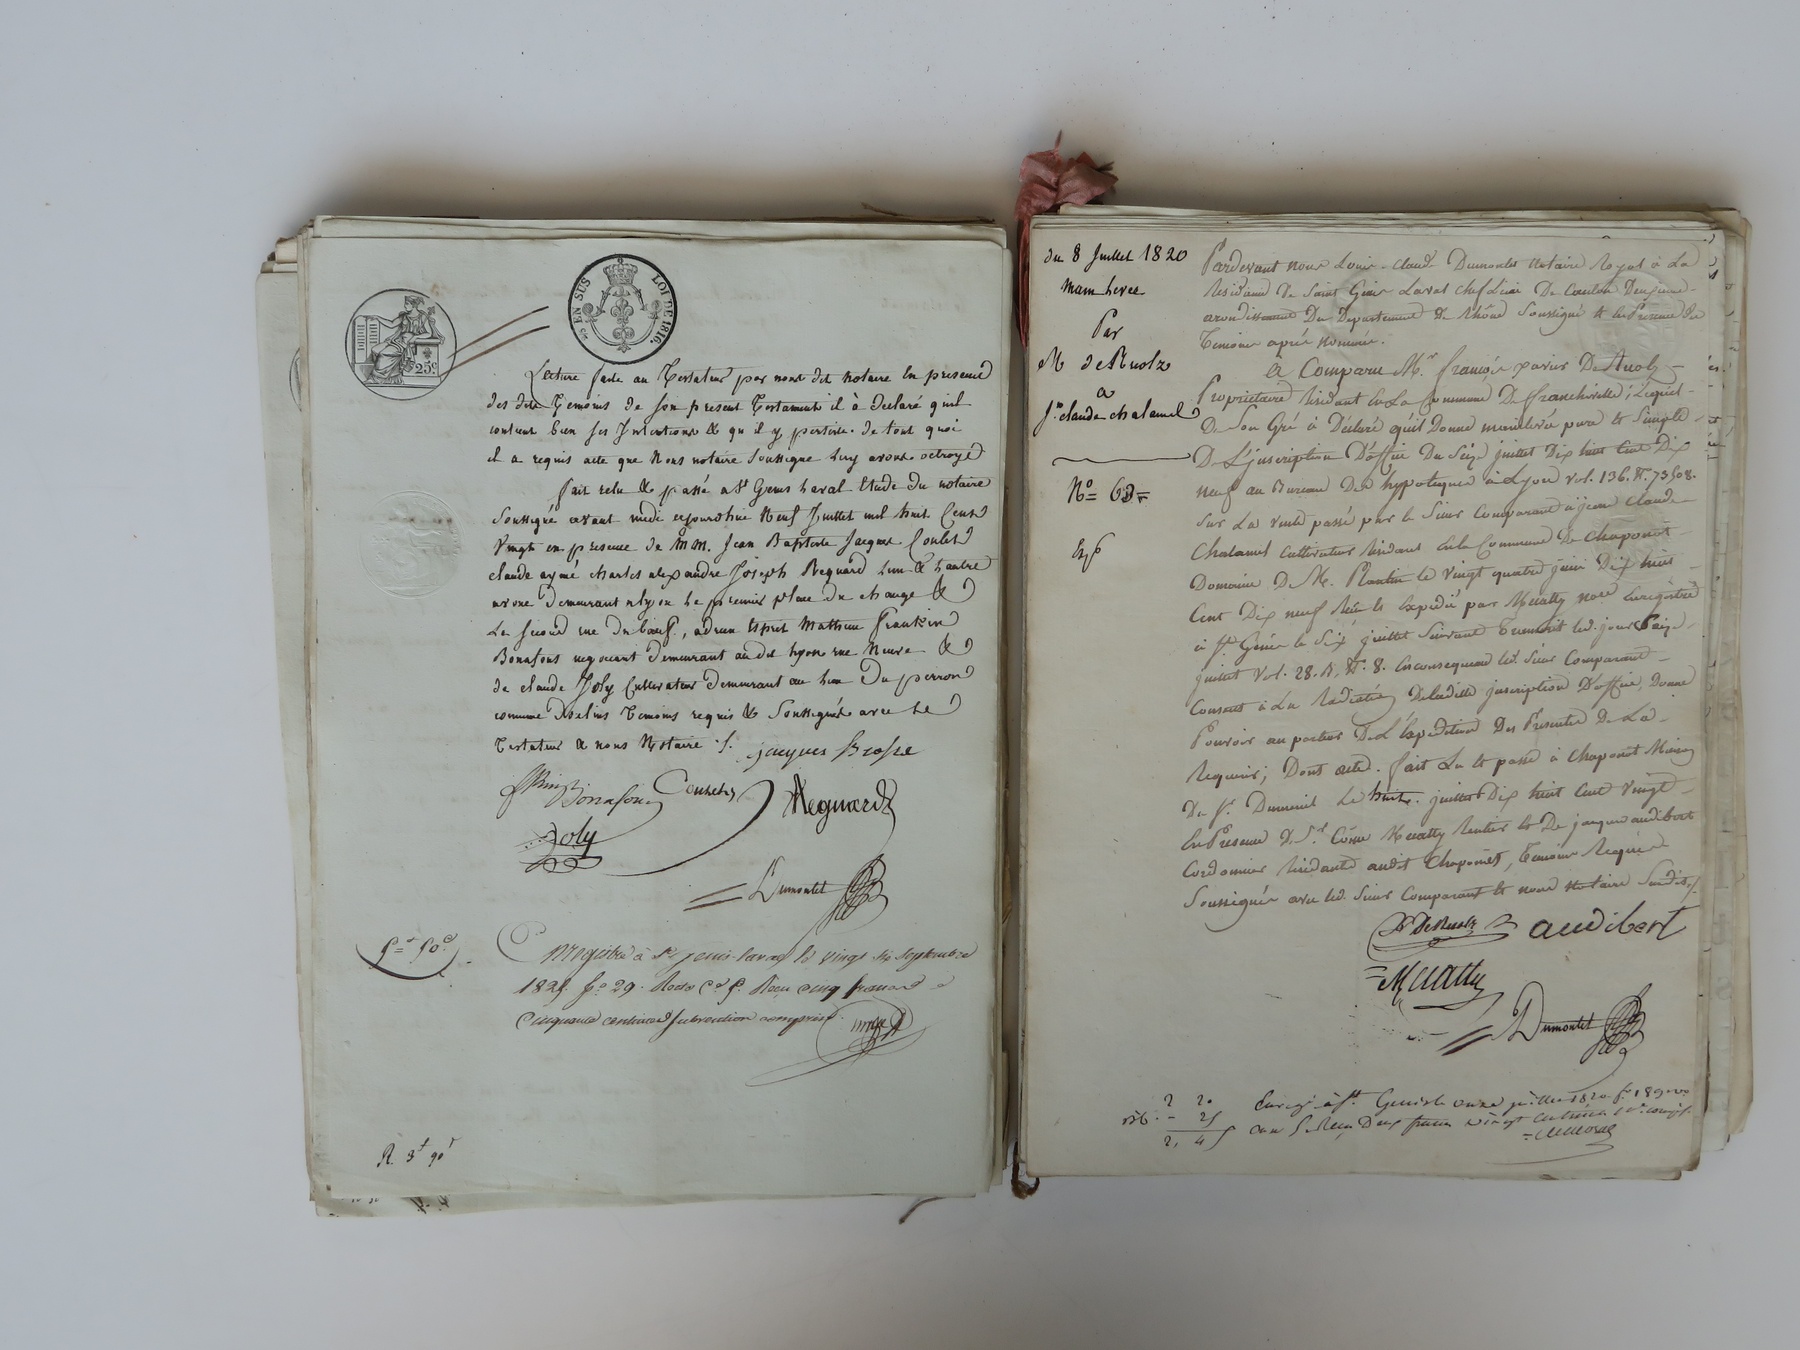 EN SUS LOI DE 1816.
25c
Lecture faite au Testateur par nous dit notaire En presence
des dits Temoins de son present Testament il à declaré qu'il
contient bien ses Intentions & qu'il y persiste. de tout quoi
il a requis acte que Nous notaire soussigné luy avons octroyé
fait relu & passé a St Genis Laval Etude du notaire
soussigné avant midi aujourdhui Neuf Juillet mil huit Cent
vingt en presence de MM. Jean Baptiste Jacques
claude aymé charles alexandre Joseph Reguard lun & l'autre
demeurant a lyon Le premier place du change &
Le second rue du boeuf, adrien Esprit Mathieu
Bonafous negociant demeurant audit lyon rue Neuve &
de claude Joly Cultivateur demeurant au lieu Du perron
commune doulins Temoins requis & Soussignés avec Le
Testateur & nous Notaire ./.
jacques
Bonafous
Reguard
Joly
Dumontet
5f 50c
Enregistré à St genis-laval le vingt six septembre
fo 29. Recto Reçu cinq francs
Cinquante centimes subvention comprise.
R. 3f 90c
du 8 Juillet 1820
main levée
Par
M de Ruolz
a
Jn claude chalamel
No
Exp
Pardevant nous Louis-Claude Dumontet Notaire Royal à La
Résidence De Saint Genis Laval Chef Lieu De Canton Deuxieme
arondissement Du Département Du Rhône Soussigné & En Présence des
Temoins après nommés.
A Comparu Mr françois xavier De Ruolz
Propriétaire Résidant En La Commune De francheville; Lequel
De Son Gré à Déclaré qu'il Donne mainlevée pure et Simple
De L'inscription D'office Du Seize juillet Dix huit Cent Dix
neuf au Bureau Des hypoteques à Lyon vol. 136. No.
Sur La vente passée par le Sieur Comparant à jean Claude
Chalamel Cultivateur Résidant En la Commune De Chaponost
Domaine De M. le vingt quatre juin Dix huit
Cent Dix neuf par Muatty nore Enregistré
à St Genis le Six juillet Suivant Transcrit led. jour Seize
juillet Vol. 28. No. 8. En consequence led. Sieur Comparant
Consent à La Radiation De ladite inscription D'office, Donne
Pouvoir au porteur De L'Expedition Des Présentes De La
Requerir; Dont acte. fait Lu et passé à Chaponost Maison
De Sr. Dumenil Le huit juillet Dix huit Cent Vingt
En Présence De Sr. Côme Muatty Rentier et De jacques audibert
Cordonnier Résidants audit Chaponost, Temoins Requis
Soussignés avec led. Sieur Comparant et nous Notaire Susdit ./.
De Ruolz audibert
Muatty
Dumontet
2 20
2, 4
Enregé à St Genis Le onze juillet 1820 fo 189
Reçu Deux francs vingt centimes